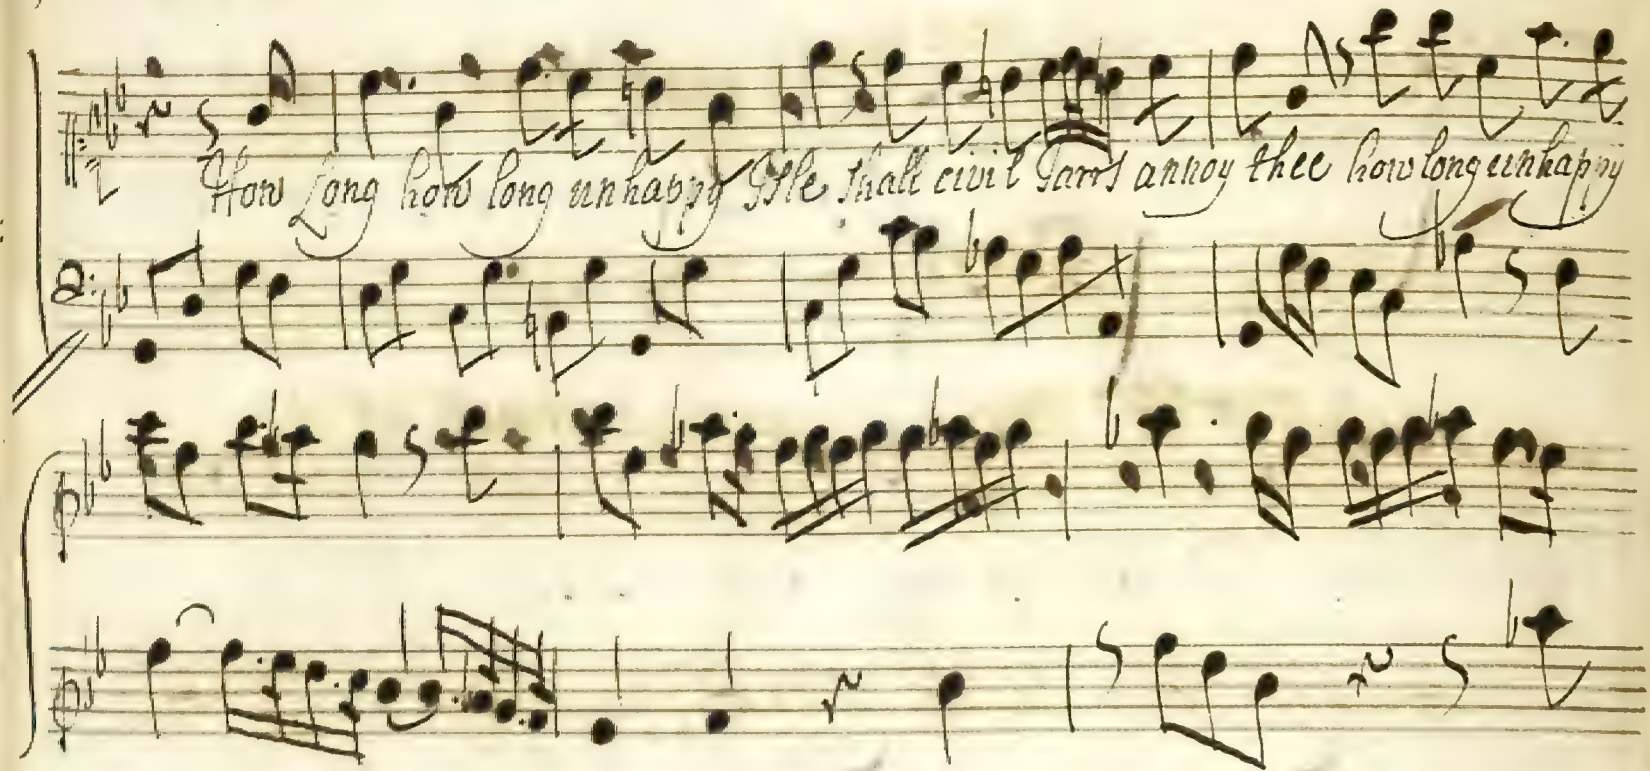 How Long how long unhappy Isle shall civil Jarrs annoy thee how long unhappy